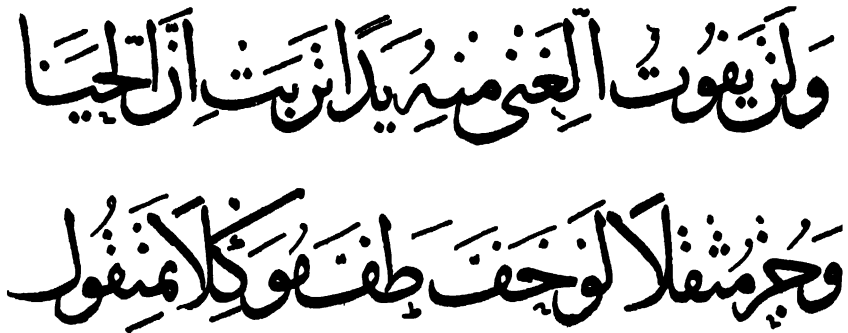 وَلَنْ يَفُوتَ الْغِنَى مِنْهُ يَدًا تَرِبَتْ اِنَّ الْحَيَا
وَحُزْ مُثْقَلًا لَوْ خَفَّ طَفَّ مُوَكِّلًا بِمَنْقُولِ